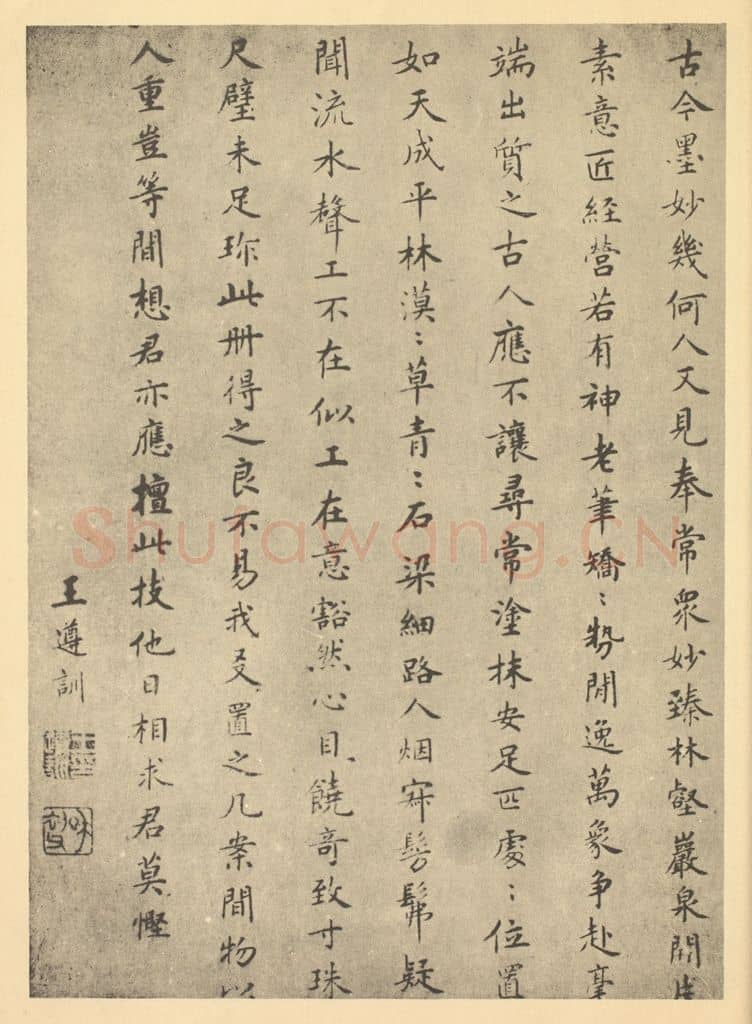 古今墨妙幾何人又見奉常衆妙臻林壑巖泉開生
素意匠經營若有神老筆矯〻勢閒逸萬象争赴毫
端出質之古人應不讓尋常塗抹安足匹處〻位置
如天成平林漠〻草青〻石梁細路人烟寂髣髴疑
聞流水聲工不在似工在意豁然心目饒奇致寸珠
尺璧未足珎此冊得之良不易我友置之几案間物以
人重豈等閒想君亦應擅此技他日相求君莫慳
王遵訓
Shufawang.CN